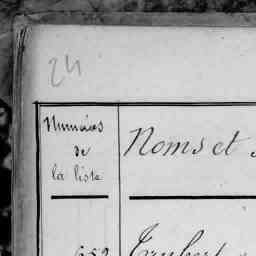 24
Numéros
de
la liste
Noms et
652